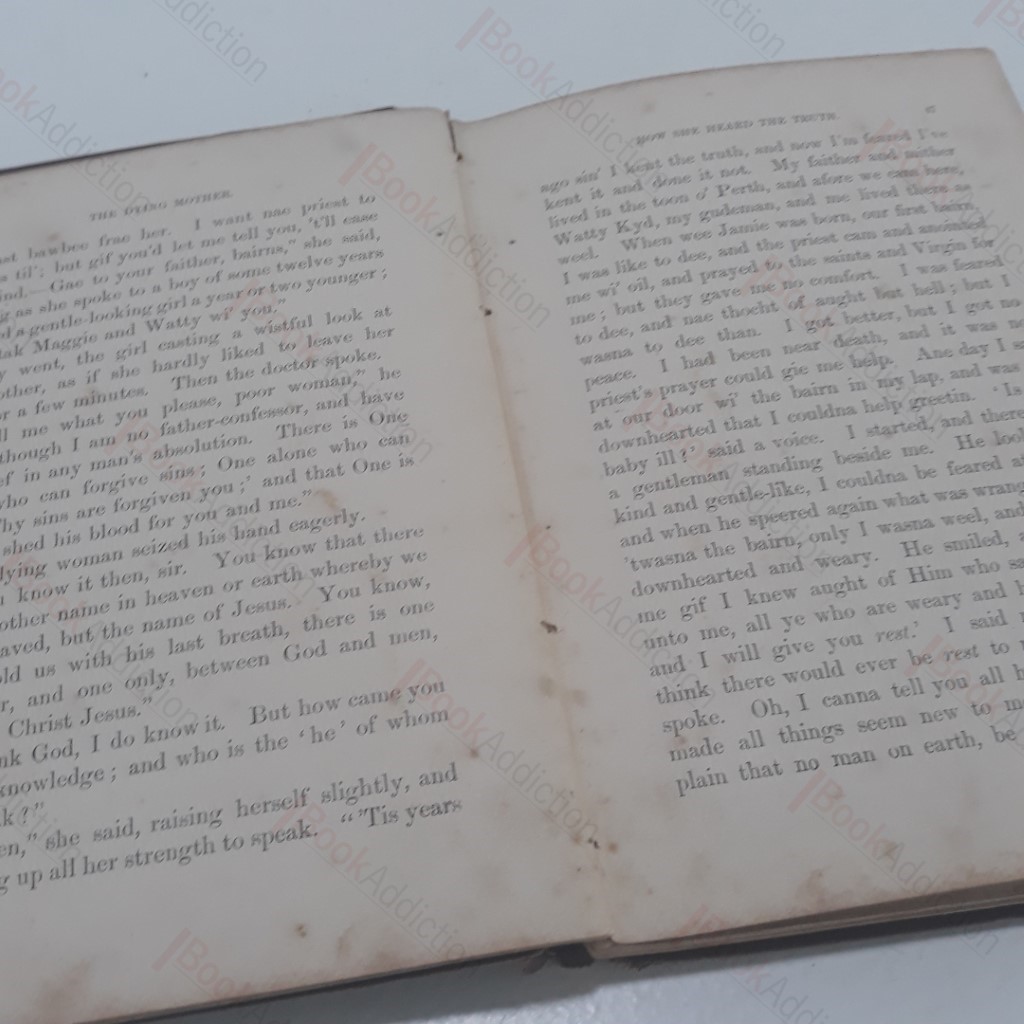 THE DYING MOTHER.
bawbee frae her. I want nae priest to
til'; but gif you'd let me tell you, 't'll ease
Gae to your faither, bairns," she said,
as she spoke to a boy of some twelve years
a gentle-looking girl a year or two younger;
tak Maggie and Watty wi' you."
went, the girl casting a wistful look at
other, as if she hardly liked to leave her
a few minutes. Then the doctor spoke.
me what you please, poor woman," he
though I am no father-confessor, and have
in any man's absolution. There is One
who can forgive sins; One alone who can
hy sins are forgiven you;' and that One is
shed his blood for you and me."
lying woman seized his hand eagerly.
know it then, sir. You know that there
other name in heaven or earth whereby we
aved, but the name of Jesus. You know,
old us with his last breath, there is one
r, and one only, between God and men,
Christ Jesus."
nk God, I do know it. But how came you
knowledge; and who is the 'he' of whom
k?"
en," she said, raising herself slightly, and
g up all her strength to speak. "'Tis years
HOW SHE HEARD THE TRUTH.
ago sin' I kent the truth, and now I'm feared I've
kent it and done it not. My faither and mither
lived in the toon o' Perth, and afore we cam here,
Watty Kyd, my gudeman, and me lived there as
weel. When wee Jamie was born, our first bairn,
I was like to dee, and the priest cam and anointed
me wi' oil, and prayed to the saints and Virgin for
me; but they gave me no comfort. I was feared
to dee, and nae thocht of aught but hell; but I
wasna to dee than. I got better, but I got no
peace. I had been near death, and it was no
priest's prayer could gie me help. Ane day I s
at our door wi' the bairn in my lap, and was
downhearted that I couldna help greetin. 'Is
baby ill?' said a voice. I started, and there
a gentleman standing beside me. He look
kind and gentle-like, I couldna be feared a
and when he speered again what was wrang
'twasna the bairn, only I wasna weel, and
downhearted and weary. He smiled, a
me gif I knew aught of Him who sa
unto me, all ye who are weary and h
and I will give you rest.' I said
think there would ever be rest to
spoke. Oh, I canna tell you all h
made all things seem new to m
plain that no man on earth, be